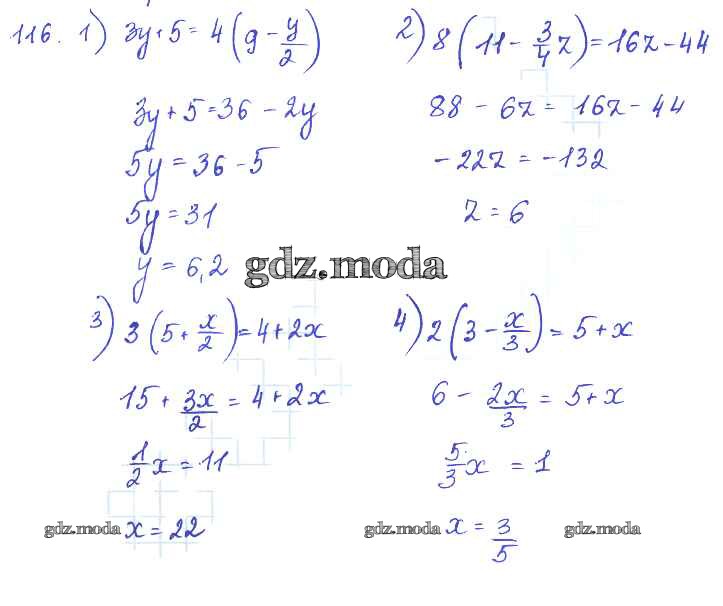 116. 1) 3y + 5 = 4 (9 - y/2)
3y + 5 = 36 - 2y
5y = 36 - 5
5y = 31
y = 6,2
2) 8 (11 - 3/4 z) = 16z - 44
88 - 6z = 16z - 44
-22z = -132
z = 6
gdz.moda
3) 3 (5 + x/2) = 4 + 2x
15 + 3x/2 = 4 + 2x
1/2 x = 11
x = 22
4) 2 (3 - x/3) = 5 + x
6 - 2x/3 = 5 + x
5/3 x = 1
x = 3/5
gdz.moda
gdz.moda
gdz.moda